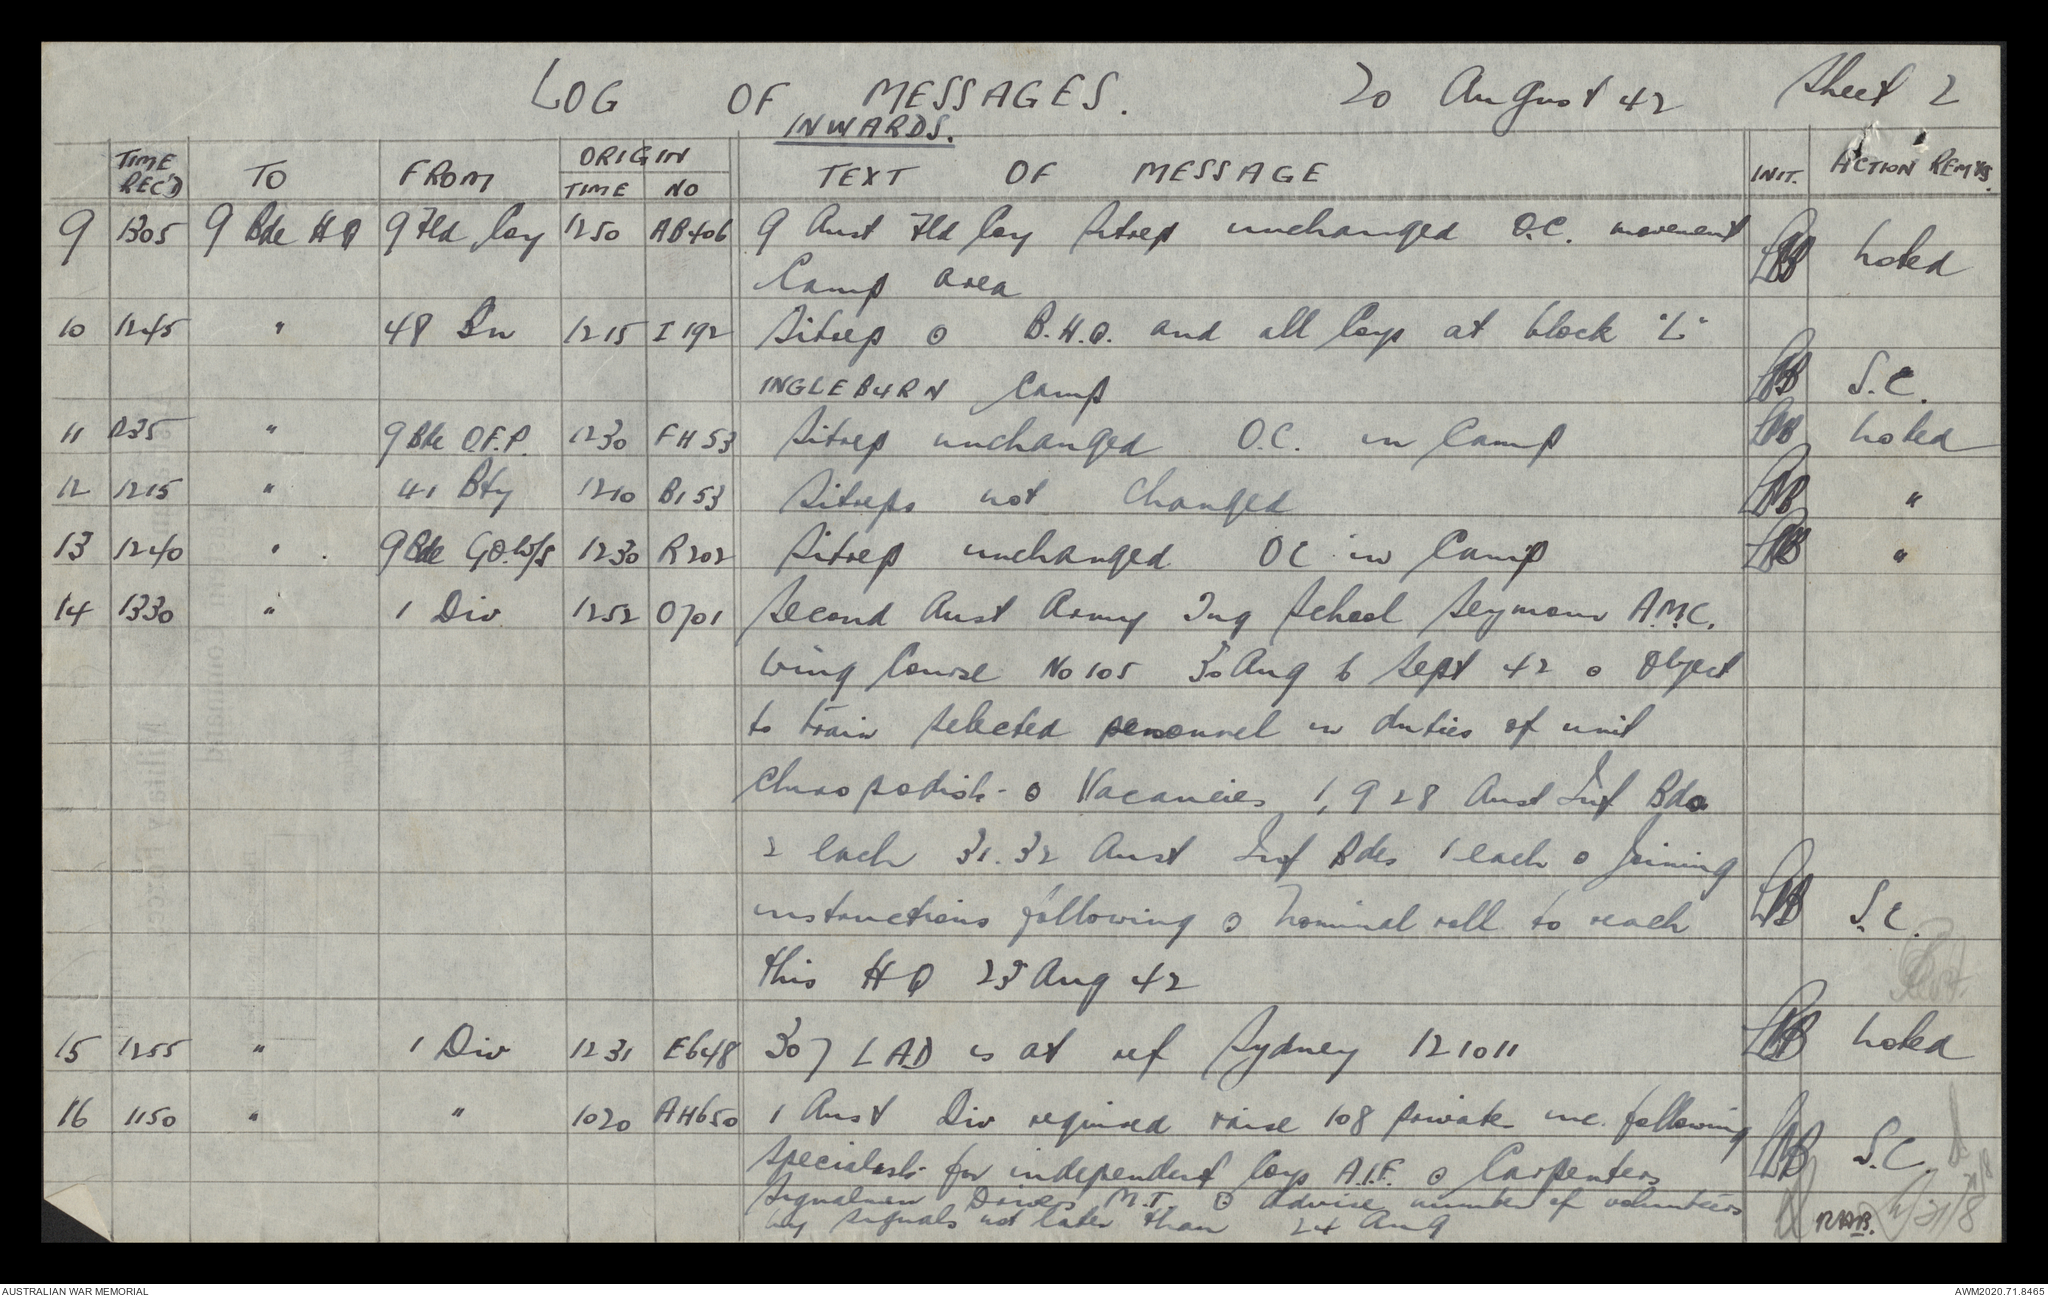 LOG OF MESSAGES. 20 August 42 Sheet 2
INWARDS.
TIME REC'D TO FROM ORIGIN TIME NO TEXT OF MESSAGE INIT. ACTION REMKS.
9 1305 9 Bde HQ 9 Fld Coy 1250 AB406 9 Aust Fld Coy Sitrep unchanged O.C. movement
Camp area noted
10 1245 " 48 Bn 1215 I192 Sitrep o B.H.Q. and all Coys at block "L"
INGLEBURN Camp S.C.
11 1235 " 9 Bde O.F.P. 1230 FH53 Sitrep unchanged O.C. in Camp noted
12 1215 " 41 Bty 1210 B153 Sitreps not changed "
13 1240 " 9 Bde Gp. W/S 1230 R202 Sitrep unchanged OC in Camp "
14 1330 " 1 Div 1252 O701 Second Aust Army Tng School Seymour A.M.C.
Wing Course No 105 30 Aug 6 Sept 42 o Object
to train selected personnel in duties of unit
chiropodists o Vacancies 1, 9 28 Aust Inf Bdes
2 each 31. 32 Aust Inf Bdes 1 each o joining
instructions following o nominal roll to reach S.C.
this HQ 23 Aug 42
15 1255 " 1 Div 1231 E648 307 LAD is at ref Sydney 121011 noted
16 1150 " " 1020 AH650 1 Aust Div required raise 108 private inc. following
specialists for independent Coys A.I.F. o Carpenters S.C.
Signalmen Drivers M.T. o advise number of volunteers
by signals not later than 24 Aug RAB. 21/8
AUSTRALIAN WAR MEMORIAL AWM2020.71.8465